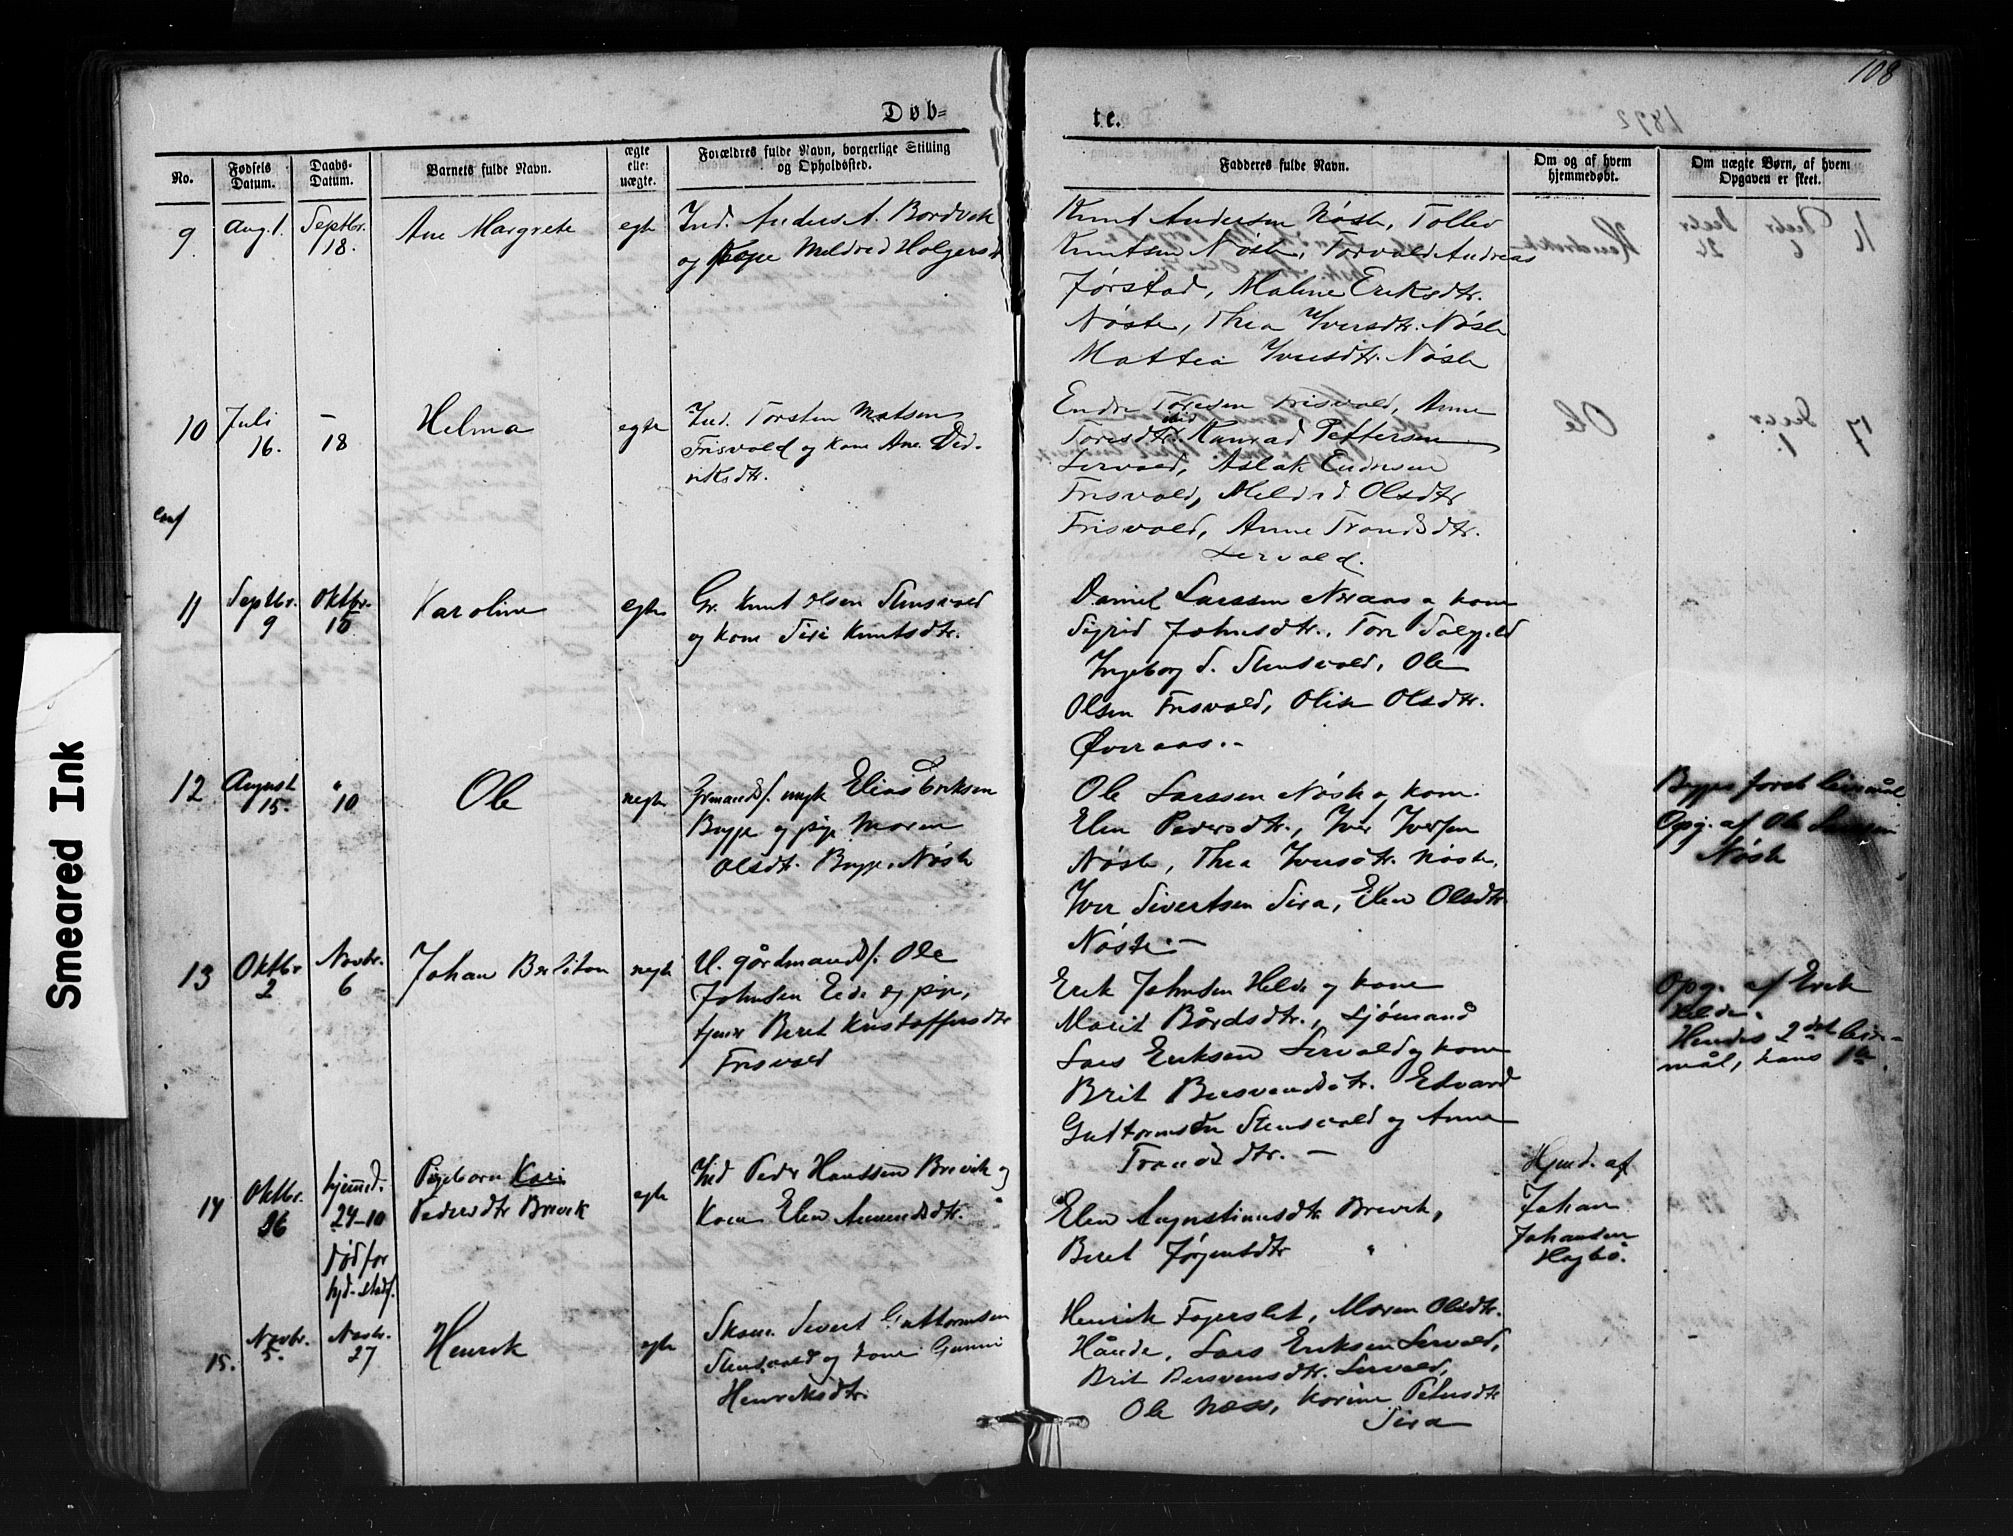 108
Døb=
te.
No.
Fødsels Datum.
Daabs-Datum.
Barnets fulde Navn.
ægte elle: uægte.
Forældres fulde Navn, borgerlige Stilling og Opholdssted.
Fadderes fulde Navn.
Om og af hvem hjemmedøbt.
Om uægte Børn, af hvem Opgaven er skeet.
9
Aug. 1.
Septbr. 18.
Ane Margrete
egte
Ind. Anders A. Bordvik
og Meldred Holgersd
Knut Andersen Nøste, Tollev
Knutsen Nøste, Torvald Andreas
Jørstad, Maline Eriksdtr.
Nøste, Thea Iversdtr. Nøste
Mattea Iversdtr. Nøste
10
Juli 16.
– 18
Helma
egte
Ind. Torsten Matsen
Frisvold og kone Ane Did-
riksdtr.
Endre Toresen Frisvold, Anne
Toresdtr. Konrad Pettersen
Lervold, Aslak Endresen
Frisvold, Meldrid Olsdtr
Frisvold, Anne Trondsdtr.
Lervold.
11
Septbr. 9
Oktbr. 10
Karoline
egte
Gr. Knut Olsen Stensvold
og kone Siri Knutsdtr.
Daniel Larssen Noraas og kone
Sigrid Johnsdtr., Tore
Ingeborg S. Stensvold, Ole
Olsen Frisvold, Olise Olsdtr.
Øveraas.-
12
August 15.
" 10
Ole
uegte
Grmands. ungk Elias Eriksen
Bugge og pige Maren
Olsdtr. Bugge, Nøste
Ole Larssen Nøste og kone
Elen Pedersdtr., Iver Iversen
Nøste, Thea Iversdtr. Nøste,
Iver Sivertsen Sira, Elen Olsdtr.
Nøste.-
Begges første leiermål
Opg. af Ole Larssen
Nøste
13
Oktbr 2
Novbr. 6
Johan Berliton
uegte
U. gårdmands. Ole
Johnsen Eide og pige,
tjener Beret Kristoffersdtr
Frisvold
Erik Johnsen Helde og kone
Marit Bårdsdtr., Sjømand
Lars Eriksen Lervold og kone
Brit Bersvendsdtr. Edvard
Guttormsen Stensvold og Anne
Trondsdtr. –
Opg. af Erik
Helde.
Hendes 2det leier-
mål, hans 1ste.
14
Oktbr. 26
hjemmd.
24-10
Død før
Pigebarn Kari
Pedersdtr Brevik
egte
Ind Peder Hanssen Brevik og
Kone Elen Amundsdtr. "
Elen Augustinusdtr. Brevik,
Beret Jørgensdtr "
Hjmd. af
Johan
Johansen
Hagbø.
15.
Novbr. 5.
Novbr. 27
Henrik
egte
Skom. Sivert Guttormsen
Stensvold og kone Gunni
Henriksdtr.
Henrik Fagerslet, Maren Olsdtr.
Hånde, Lars Eriksen Lervold,
Brit Bersvensdtr. Lervold,
Ole Næss, Karine Petersdtr
Sira
Smeared Ink